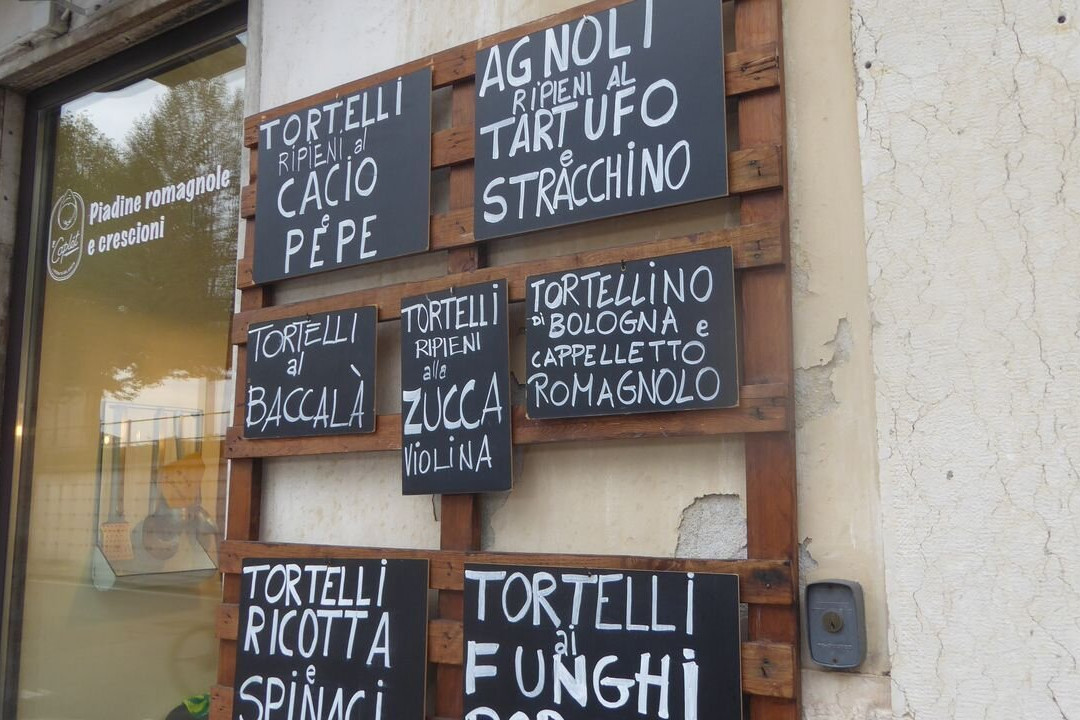 Piadine romagnole
e crescioni
TORTELLi
RiPiENi al
CACiO
e
PEPE
AGNOLi
RiPiENi AL
TARTUFO
e
STRACCHiNO
TORTELLi
al
BACCALÀ
TORTELLi
RiPiENi
alla
ZUCCA
ViOLiNA
TORTELLiNO
Di BOLOGNA e
CAPPELLETTO
ROMAGNOLO
TORTELLi
RiCOTTA
e
SPiNACi
TORTELLi
ai
FUNGHi